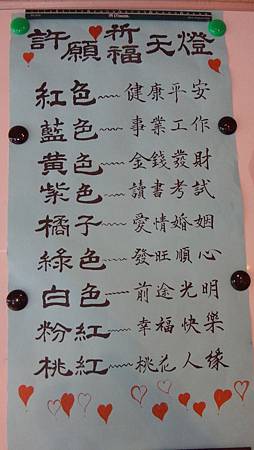 許願祈福天燈
紅色﹏﹏健康平安
藍色﹏﹏事業工作
黃色﹏﹏金錢發財
紫色﹏﹏讀書考試
橘子﹏﹏愛情婚姻
綠色﹏﹏發旺順心
白色﹏﹏前途光明
粉紅﹏﹏幸福快樂
桃紅﹏﹏桃花人緣